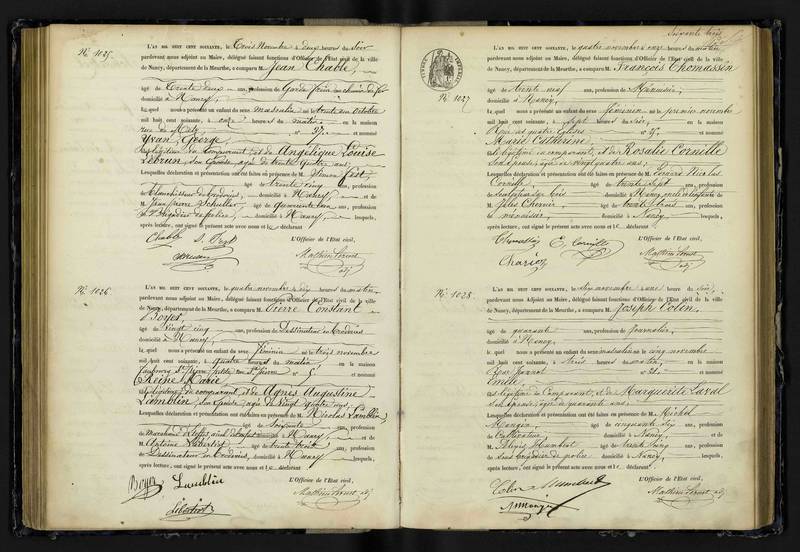 N° 1025.
L'AN MIL HUIT CENT SOIXANTE, le trois novembre à deux heures du soir
pardevant nous Adjoint au Maire, délégué faisant fonctions d'Officier de l'Etat civil de la ville
de Nancy, département de la Meurthe, a comparu M. Jean Chable,
âgé de trente deux ans, profession de Garde frein au chemin de fer
domicilié à Nancy,
lequel nous a présenté un enfant du sexe masculin né le trente un octobre
mil huit cent soixante, à onze heures du matin en la maison
rue de Metz n° 27 et nommé
Yvan George
Angélique Louise
Lebrun, son épouse, âgée de trente quatre ans;
Lesquelles déclaration et présentation ont été faites en présence de M. Simon
âgé de trente cinq ans, profession
de Blanchisseur de broderies, domicilié à Nancy et de
M. Jean pierre Schuller âgé de quarante un ans, profession
de Brigadier de police, domicilié à Nancy lesquels,
après lecture, ont signé le présent acte avec nous et le déclarant
Chable
L'Officier de l'Etat civil,
N° 1026.
L'AN MIL HUIT CENT SOIXANTE, le quatre novembre à dix heures du matin
pardevant nous Adjoint au Maire, délégué faisant fonctions d'Officier de l'Etat civil de la ville
de Nancy, département de la Meurthe, a comparu M. Pierre Constant
Boyer,
âgé de vingt cinq ans, profession de Dessinateur en broderies
domicilié à Nancy,
lequel nous a présenté un enfant du sexe féminin né le trois novembre
mil huit cent soixante, à quatre heures du matin en la maison
faubourg St Pierre n° 5 et nommé
Reine Marie
fille légitime du comparant, et de Agnès Augustine
Lamblin, son épouse, âgée de vingt quatre ans;
Lesquelles déclaration et présentation ont été faites en présence de M. Nicolas Lamblin
âgé de soixante ans, profession
de marchand domicilié à Nancy, et de
M. Antoine âgé de trente trois ans, profession
de Dessinateur en broderies, domicilié à Nancy lesquels,
après lecture, ont signé le présent acte avec nous et le déclarant
Boyer Lamblin
L'Officier de l'Etat civil,
N° 1027
L'AN MIL HUIT CENT SOIXANTE, le quatre novembre à onze heures du matin
pardevant nous Adjoint au Maire, délégué faisant fonctions d'Officier de l'Etat civil de la ville
de Nancy, département de la Meurthe, a comparu M. François Thomassin
âgé de trente neuf ans, profession de Menuisier
domicilié à Nancy,
lequel nous a présenté un enfant du sexe féminin né le premier novembre
mil huit cent soixante, à sept heures du soir, en la maison
Rue des quatre Eglises n° et nommé
Marie Catherine
fille légitime du comparant, et de Rosalie Cornille
son épouse, âgée de vingt quatre ans;
Lesquelles déclaration et présentation ont été faites en présence de M. Nicolas
Cornille âgé de trente sept ans, profession
de sculpteur sur bois domicilié à Nancy, et de
M. Jules âgé de trente trois ans, profession
de menuisier, domicilié à Nancy lesquels,
après lecture, ont signé le présent acte avec nous et le déclarant.
Thomassin E. Cornille
L'Officier de l'Etat civil,
N° 1028.
L'AN MIL HUIT CENT SOIXANTE, le six novembre à une heures du soir,
pardevant nous Adjoint au Maire, délégué faisant fonctions d'Officier de l'Etat civil de la ville
de Nancy, département de la Meurthe, a comparu M. Joseph Colin,
âgé de quarante ans, profession de Journalier,
domicilié à Nancy,
lequel nous a présenté un enfant du sexe masculin né le cinq novembre
mil huit cent soixante, à trois heures du matin, en la maison
n° 21 et nommé
Emile
fils légitime du Comparant, et de Marguerite Laval
son épouse, âgée de quarante ans;
Lesquelles déclaration et présentation ont été faites en présence de M. Michel
Mangin âgé de cinquante six ans, profession
de Cultivateur domicilié à Nancy, et de
M. Alexis Humbert âgé de ans, profession
de sous brigadier de police domicilié à Nancy, lesquels,
après lecture, ont signé le présent acte avec nous et le déclarant.
Colin Humbert
L'Officier de l'Etat civil,
Mangin